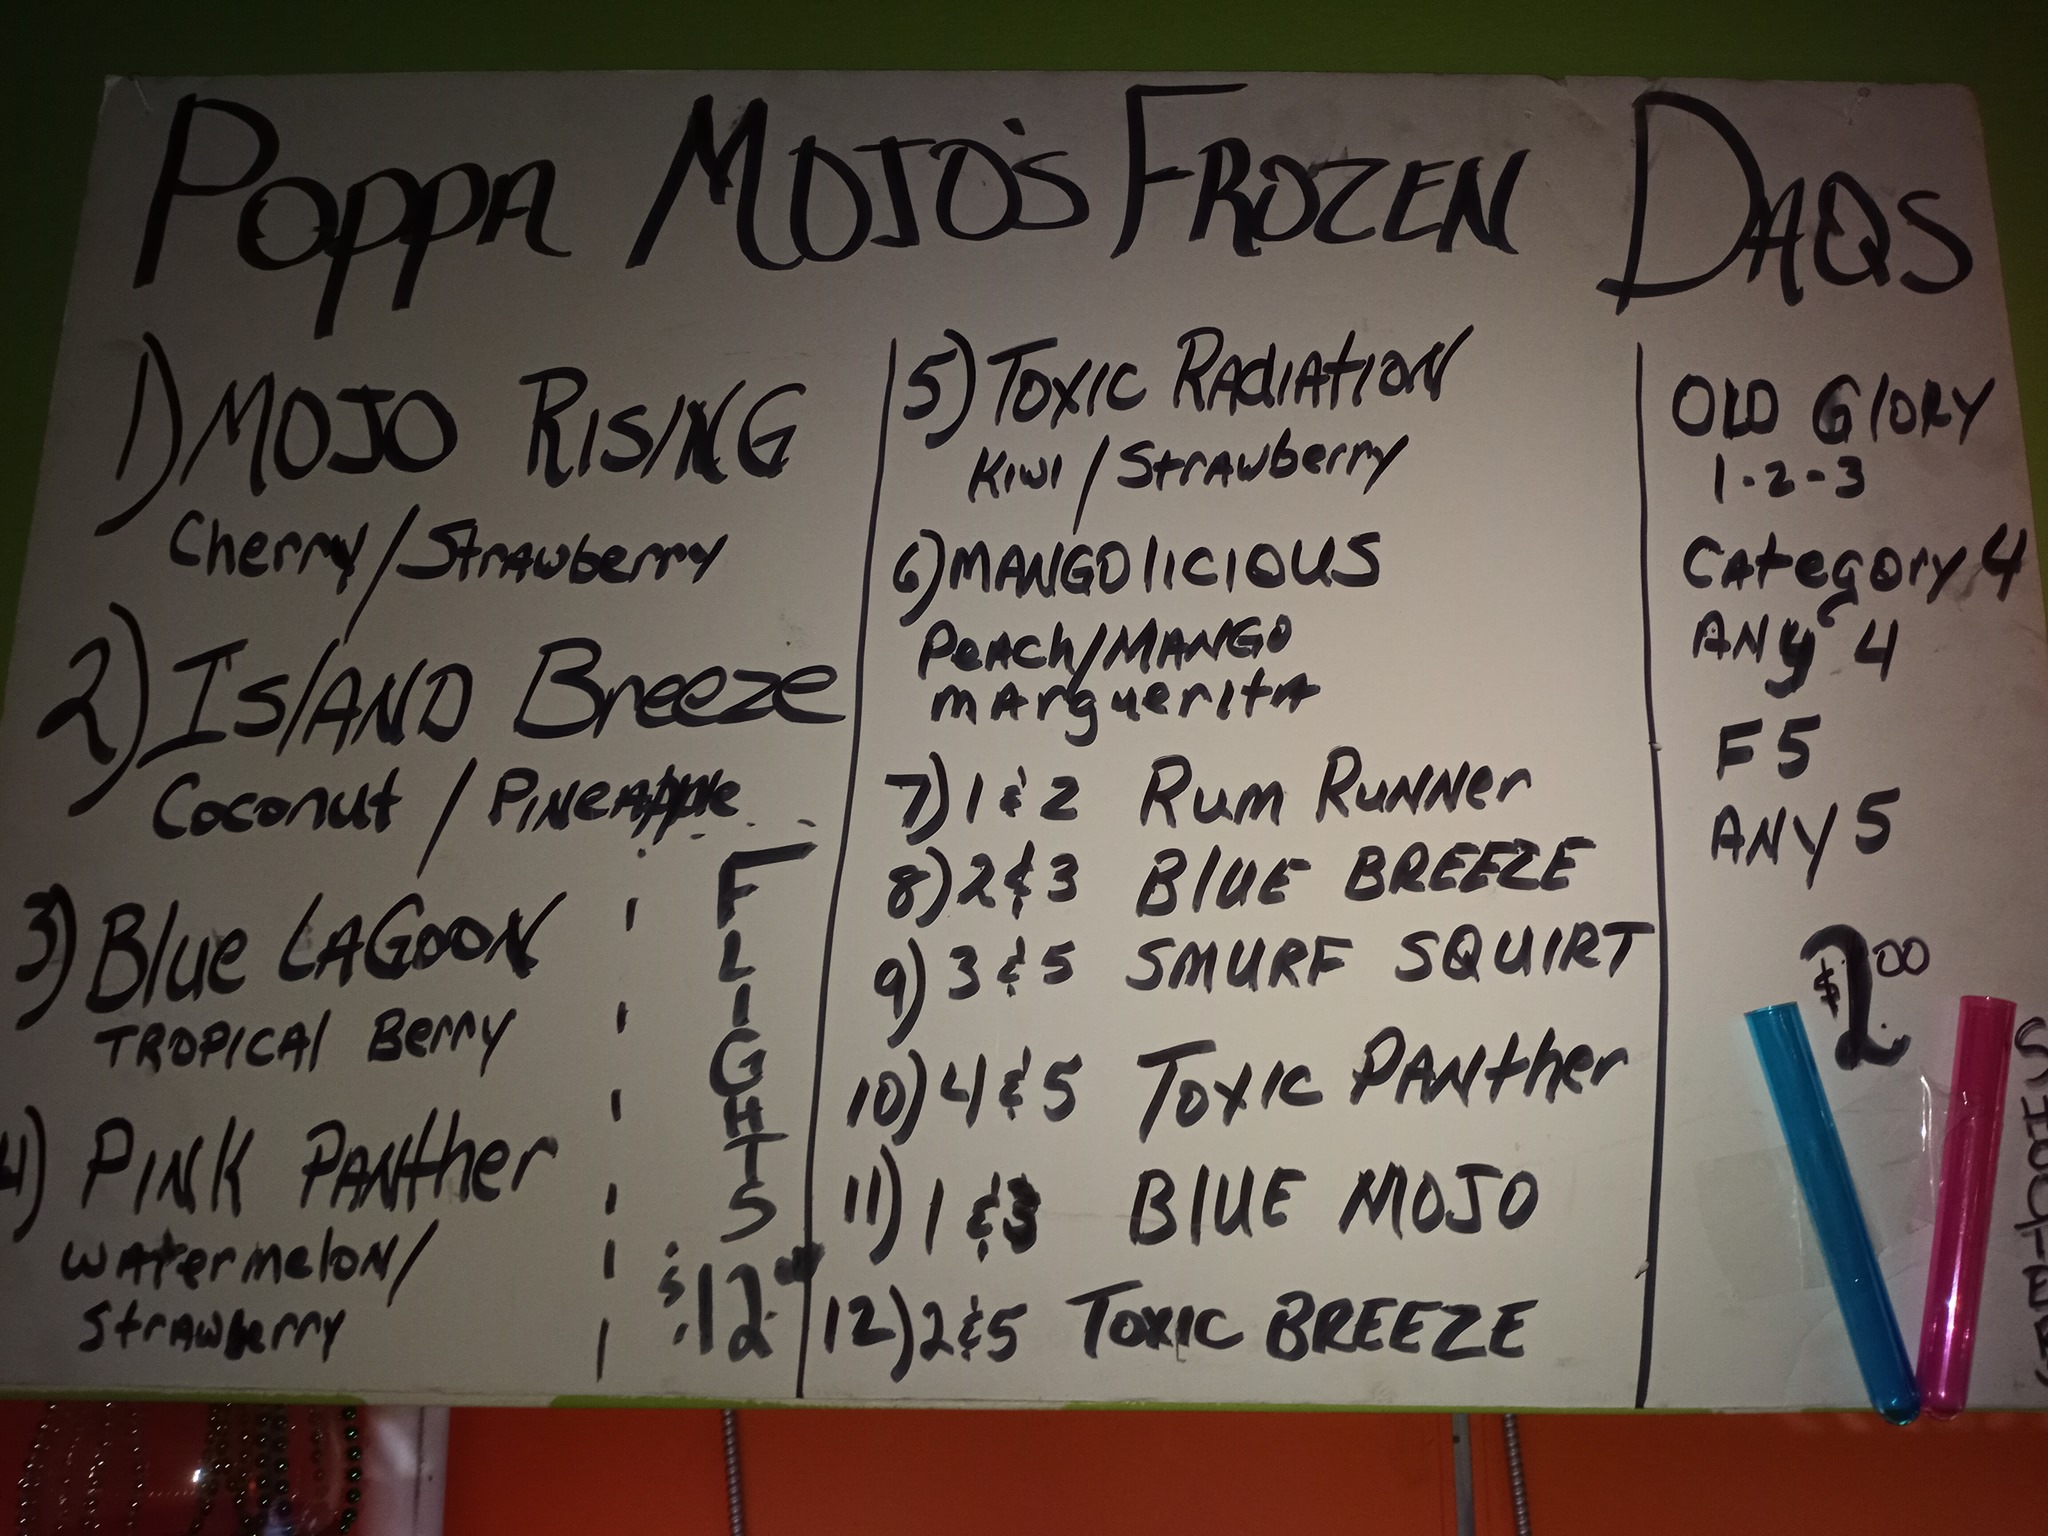 POPPA MOJO'S FROZEN DAQS
1) MOJO RISING
Cherry/Strawberry
2) ISlAND Breeze
Coconut / PINeApple
3) Blue LAGOON
TROPICAl Berry
4) PINK PANther
WAtermelon/
StrAwberry
FLIGHTS
$12.00
5) TOXIC RAdIAtION
KIWI / StrAwberry
6) MANGOlICIOUS
PeACh/MANGO
mArguerItA
7) 1 & 2 RUm RUNNer
8) 2 & 3 BlUE BREEZE
9) 3 & 5 SMURF SQUIRT
10) 4 & 5 TOXIC PANther
11) 1 & 3 BlUE MOJO
12) 2 & 5 TOXIC BREEZE
OlD GlORY
1-2-3
CAtegOry 4
ANY 4
F5
ANY 5
$2.00
SHOOTERS